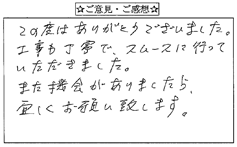 ☆ご意見・ご感想☆
この度はありがとうございました。
工事も丁寧で、スムースに行って
いただきました。
また機会がありましたら、
宜しくお願い致します。